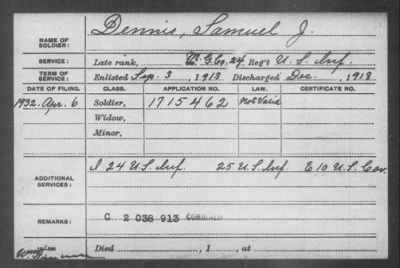 NAME OF SOLDIER: Dennis, Samuel J.
SERVICE: Late rank, Co. 24 Reg't U. S. Inf.
TERM OF SERVICE: Enlisted Sep. 3, 1913 Discharged Dec. , 1918
DATE OF FILING. CLASS. APPLICATION NO. LAW. CERTIFICATE NO.
1932. Apr. 6 Soldier, 1715462 Not Valid
Widow,
Minor,
ADDITIONAL SERVICES: I 24 U.S. Inf. 25 U.S. Inf. E 10 U.S. Cav.
REMARKS: C 2 038 913 COMBINED
Died , 1 , at